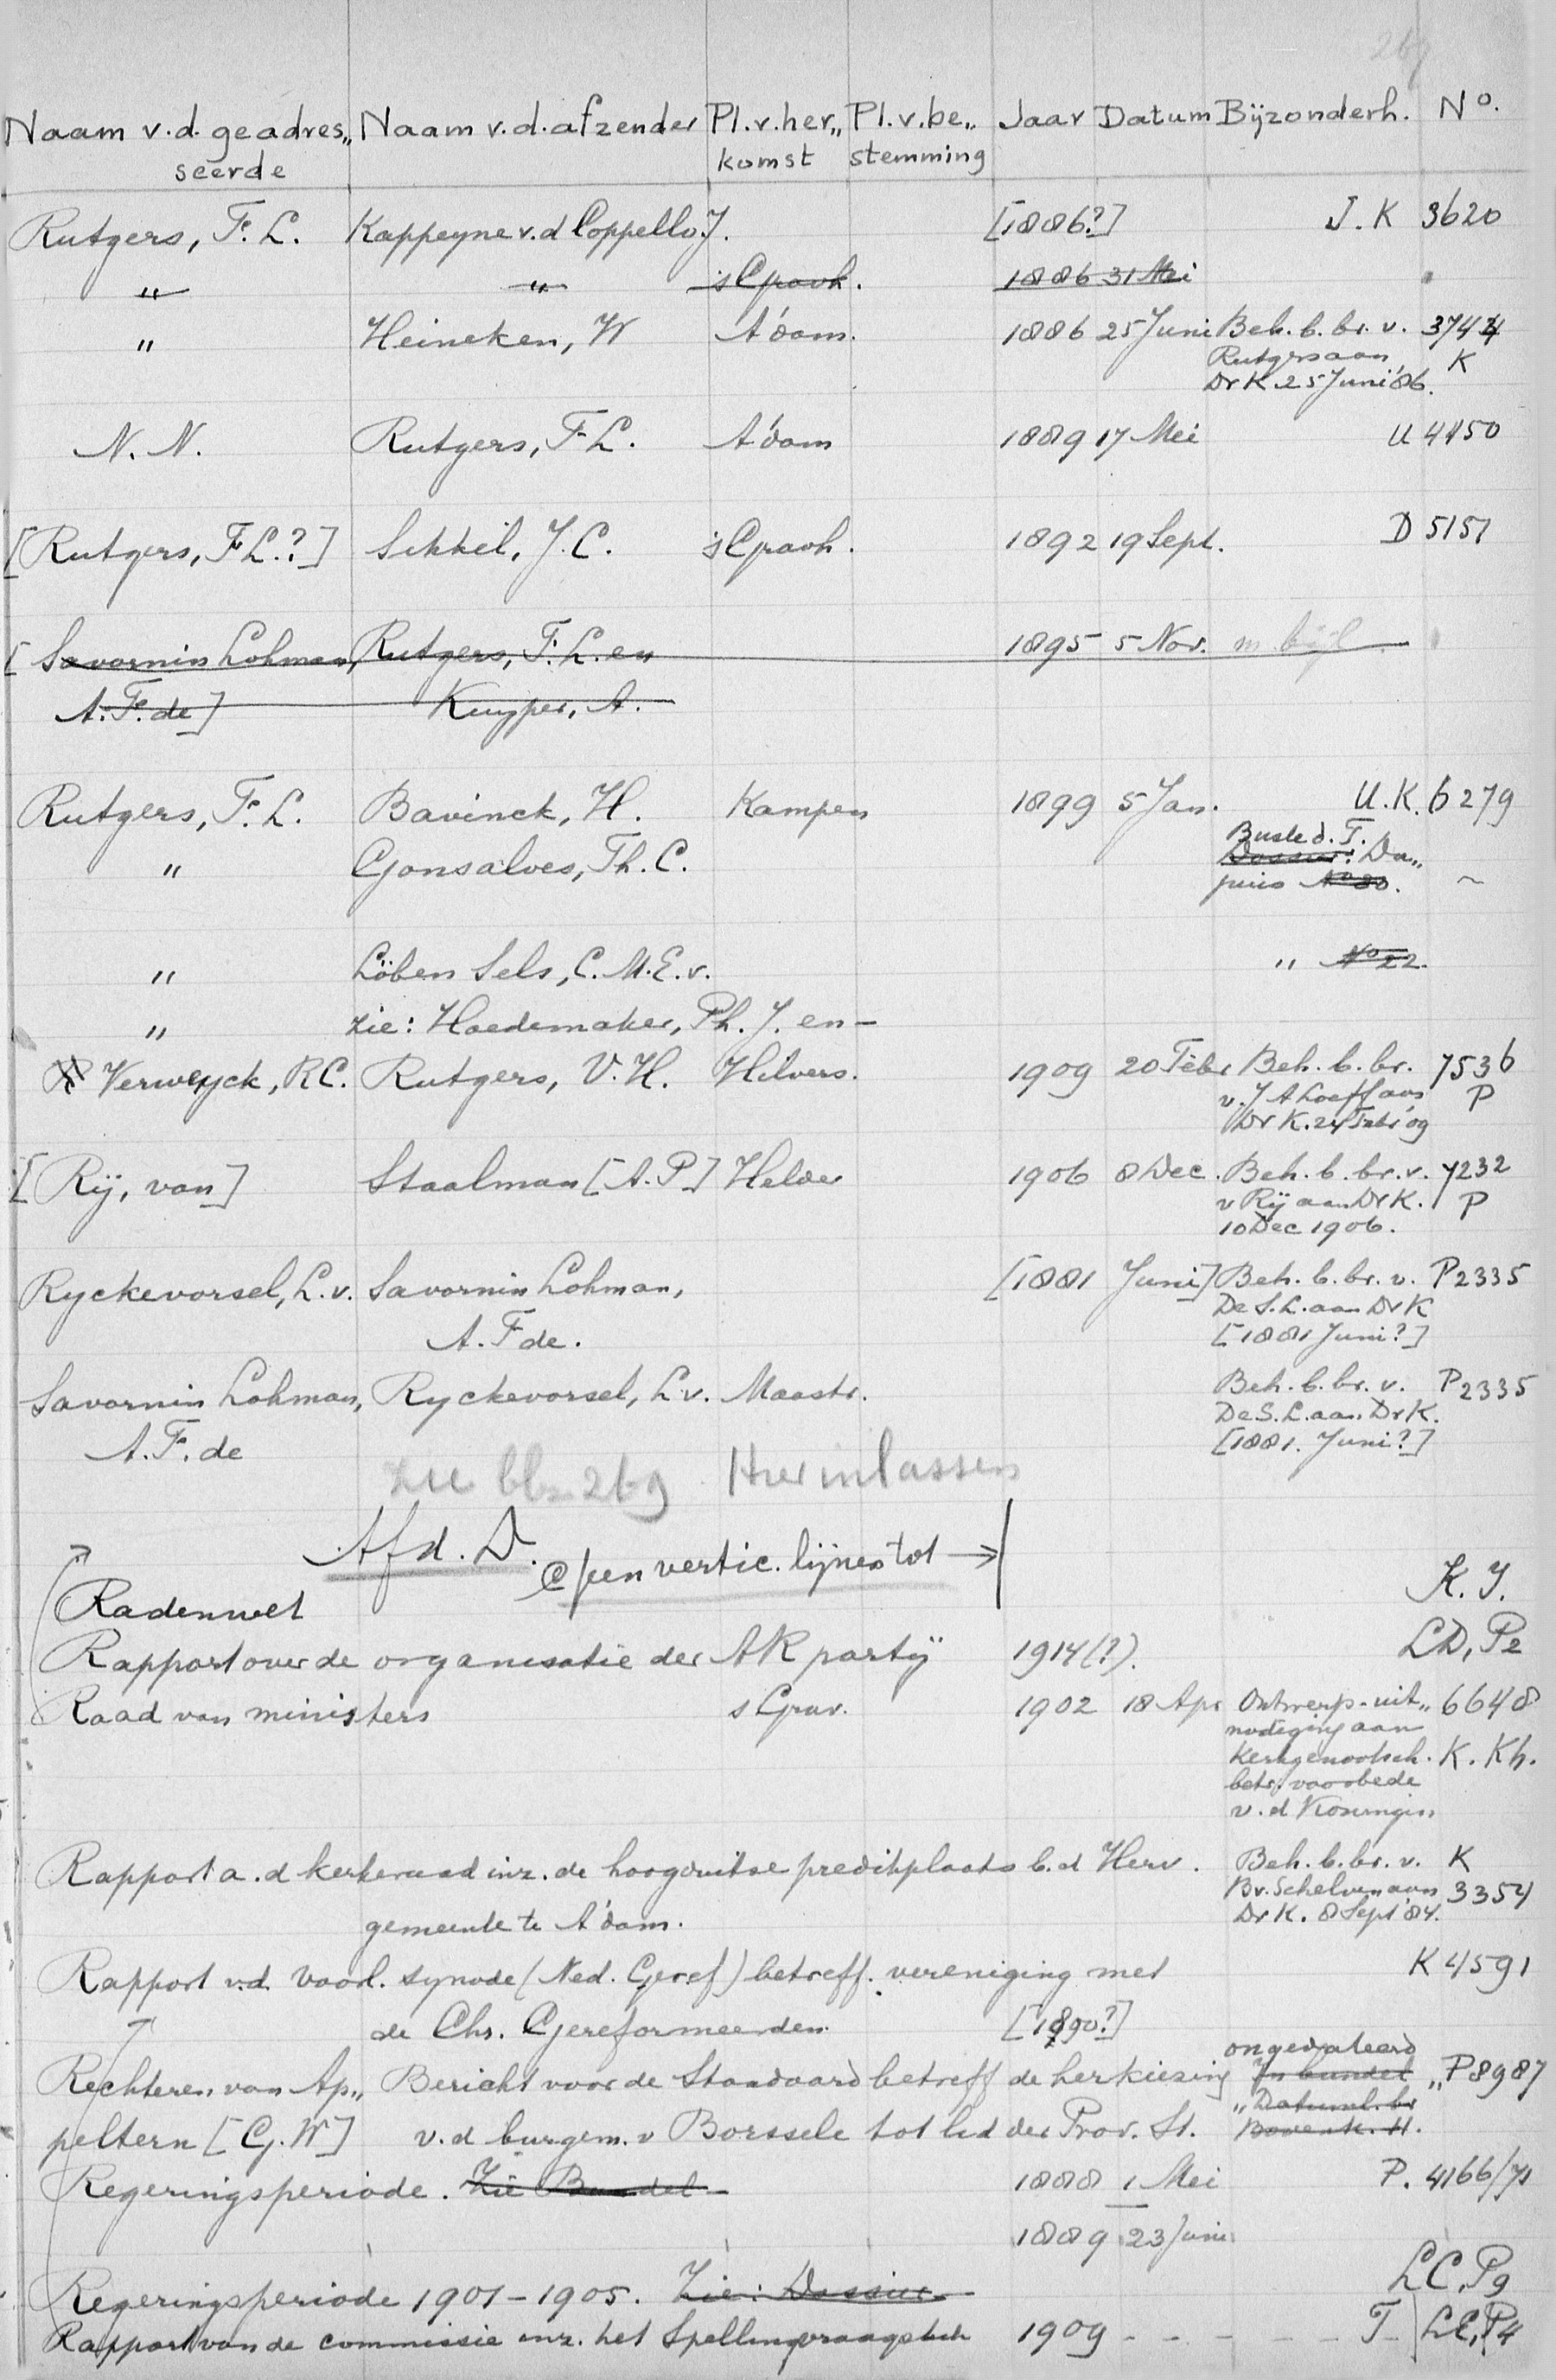 269
Naam v.d. geadres„ Naam v.d. afzender Pl.v.her„ Pl.v.be„ Jaar Datum Bijzonderh. No.
seerde komst stemming
Rutgers, F.L. Kappeyne v.d Coppello J. [1886?] J.K 3620
" " 's Gravh. 1886 31 Mei
" Heineken, W A'dam. 1886 25 Juni Beh. b. br. v. 3744
Rutgers aan K
Dr K. 25 Juni '86.
N.N. Rutgers, F.L. A'dam 1889 17 Mei U 4150
[Rutgers, F.L.?] Sikkel, J.C. 's Gravh. 1892 19 Sept. D 5151
[Savornin Lohman, Rutgers, F.L. en 1895 5 Nov. m. bijl.
A.F. de] Kuyper, A.
Rutgers, F.L. Bavinck, H. Kampen 1899 5 Jan. U.K. 6279
Buste d. T.
" Gonsalves, Th. C. Dossier: Du„
puis No 20. ~
" Löben Sels, C.M.E. v. " No 22.
" zie: Hoedemaker, Ph. J. en —
Verweyck, R.C. Rutgers, V.H. Hilvers. 1909 20 Febr. Beh. b. br. 7536
v. J A Loeff aan P
Dr K. 24 Febr '09
[Rij, van] Staalman [A.P] Helder 1906 8 Dec. Beh. b. br. v. 7232
v Rij aan Dr K. P
10 Dec 1906.
Ryckevorsel, L.v. Savornin Lohman, [1881 Juni] Beh. b. br. v. P 2335
De S.L. aan Dr K
A.F de. [1881 Juni?]
Savornin Lohman, Ryckevorsel, L.v. Maastr. Beh. b. br. v. P 2335
De S.L. aan Dr K.
A.F. de [1881. Juni?]
zie blz 269 Hier inlassen
Afd. D. geen vertic. lijnen tot →|
Radenwet K. J.
Rapport over de organisatie der AR partij 1914(?). LD, P2
Raad van ministers s Grav. 1902 18 Apr Ontwerp-uit„ 6648
nodiging aan
Kerkgenootsch. K. Kh.
betr. voorbede
v. d Koningin
Rapport a.d kerkeraad inz. de hoogduitse predikplaats b.d Herv. Beh. b. br. v. K
Br. Schelven aan 3354
gemeente te A'dam. Dr K. 8 Sept '84.
Rapport v.d. voorl. synode (Ned. Geref) betreff. vereniging met K 4591
de Chr. Gereformeerden [1890?]
ongedateerd
Rechteren van Ap„ Bericht voor de Standaard betreff de herkiezing In bundel „P 8987
" Datuml. br
peltern [G.W] v.d burgem. v Borssele tot lid der Prov. St. Bovenk. H.
Regeringsperiode. Zie Bundel — 1888 1 Mei P. 4166/71
1889 23 Juni
Regeringsperiode 1901–1905. Zie: Dossier. LC, P9
Rapport van de commissie inz. het Spellingvraagstuk 1909 - - - - - T LE, P4